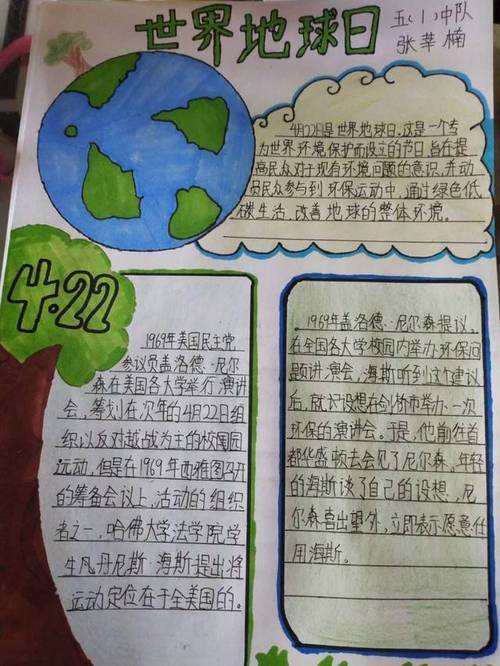 世界地球日
五(1)中队
张莘楠
4月22日是世界地球日,这是一个专
为世界环境保护而设立的节日,旨在提
高民众对于现有环境问题的意识,并动
员民众参与到环保运动中,通过绿色低
碳生活,改善地球的整体环境。
4.22
1969年美国民主党
参议员盖洛德·尼尔
森在美国各大学举行演讲
会,筹划在次年的4月22日组
织以反对越战为主的校园
运动,但是在1969年西雅图召开
的筹备会议上,活动的组织
者之一,哈佛大学法学院学
生凡丹尼斯·海斯提出将
运动定位在于全美国的。
1969年盖洛德·尼尔森提议,
在全国各大学校园内举办环保问
题讲演会,海斯听到这个建议
后,就长设想在剑桥市举办一次
环保的演讲会。于是,他前往首
都华盛顿去会见了尼尔森。年轻
的海斯谈了自己的设想,尼
尔森喜出望外,立即表示愿意任
用海斯。